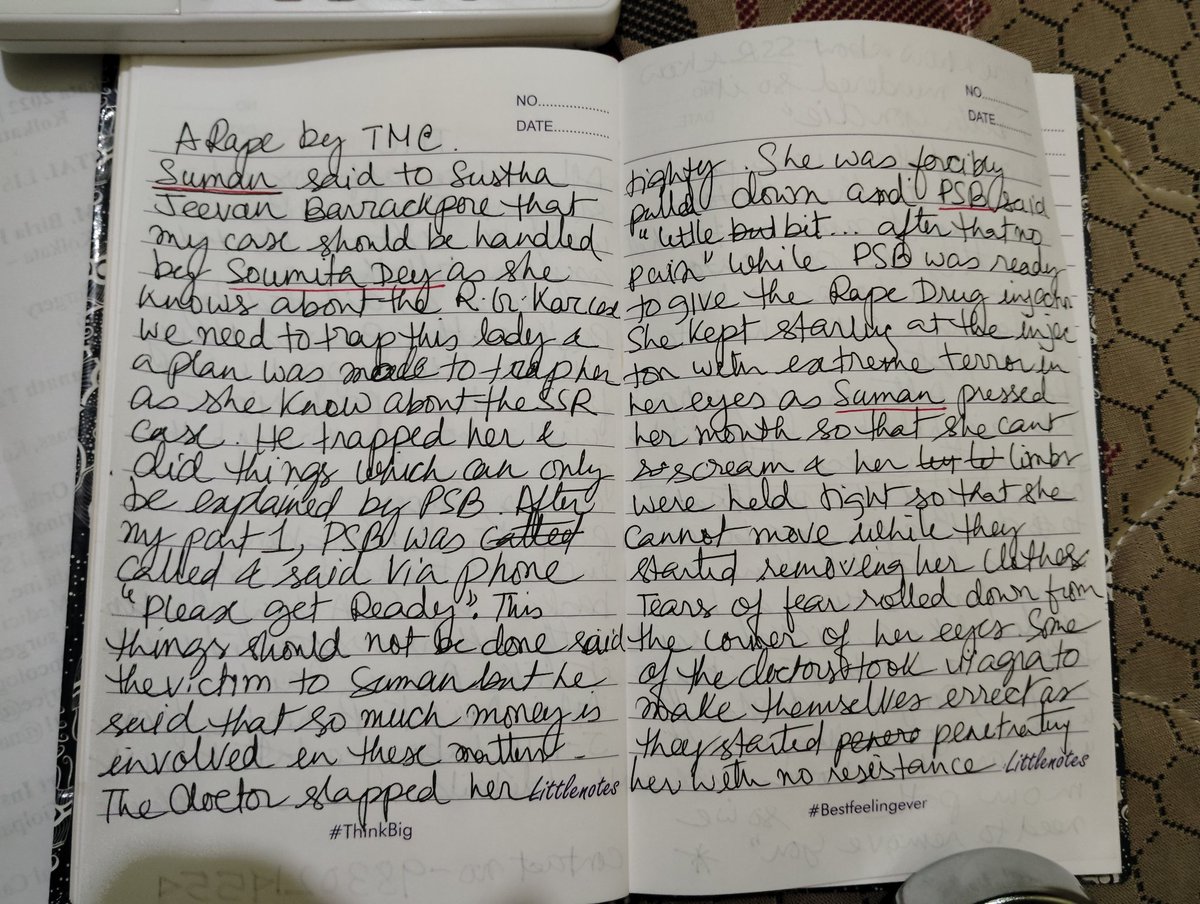 NO...............
DATE............
A Rape by TMC.
Suman said to Sustha
Jeevan Barrackpore that
my case should be handled
by Soumita Dey as she
knows about the R.G. Kar case
we need to trap this lady &
a plan was made to trap her
as she know about the SSR
case. He trapped her &
did things which can only
be explained by PSB. After
my part 1, PSB was called
called & said via phone
"Please get Ready". This
things should not be done said
the victim to Suman but he
said that so much money is
involved in these matters.
The doctor slapped her
Littlenotes
#ThinkBig
NO...............
DATE............
tighty. She was forcibly
pulled down and PSB said
"little but bit... after that no
pain" while PSB was ready
to give the Rape Drug injection
She kept staring at the injec
tion with extreme terror in
her eyes as Suman pressed
her mouth so that she cant
scream & her limbs
were held tight so that she
cannot move while they
started removing her clothes
Tears of fear rolled down from
the corner of her eyes. Some
of the doctors took viagra to
make themselves errect as
they started penetrating
her with no resistance
Littlenotes
#Bestfeelingever